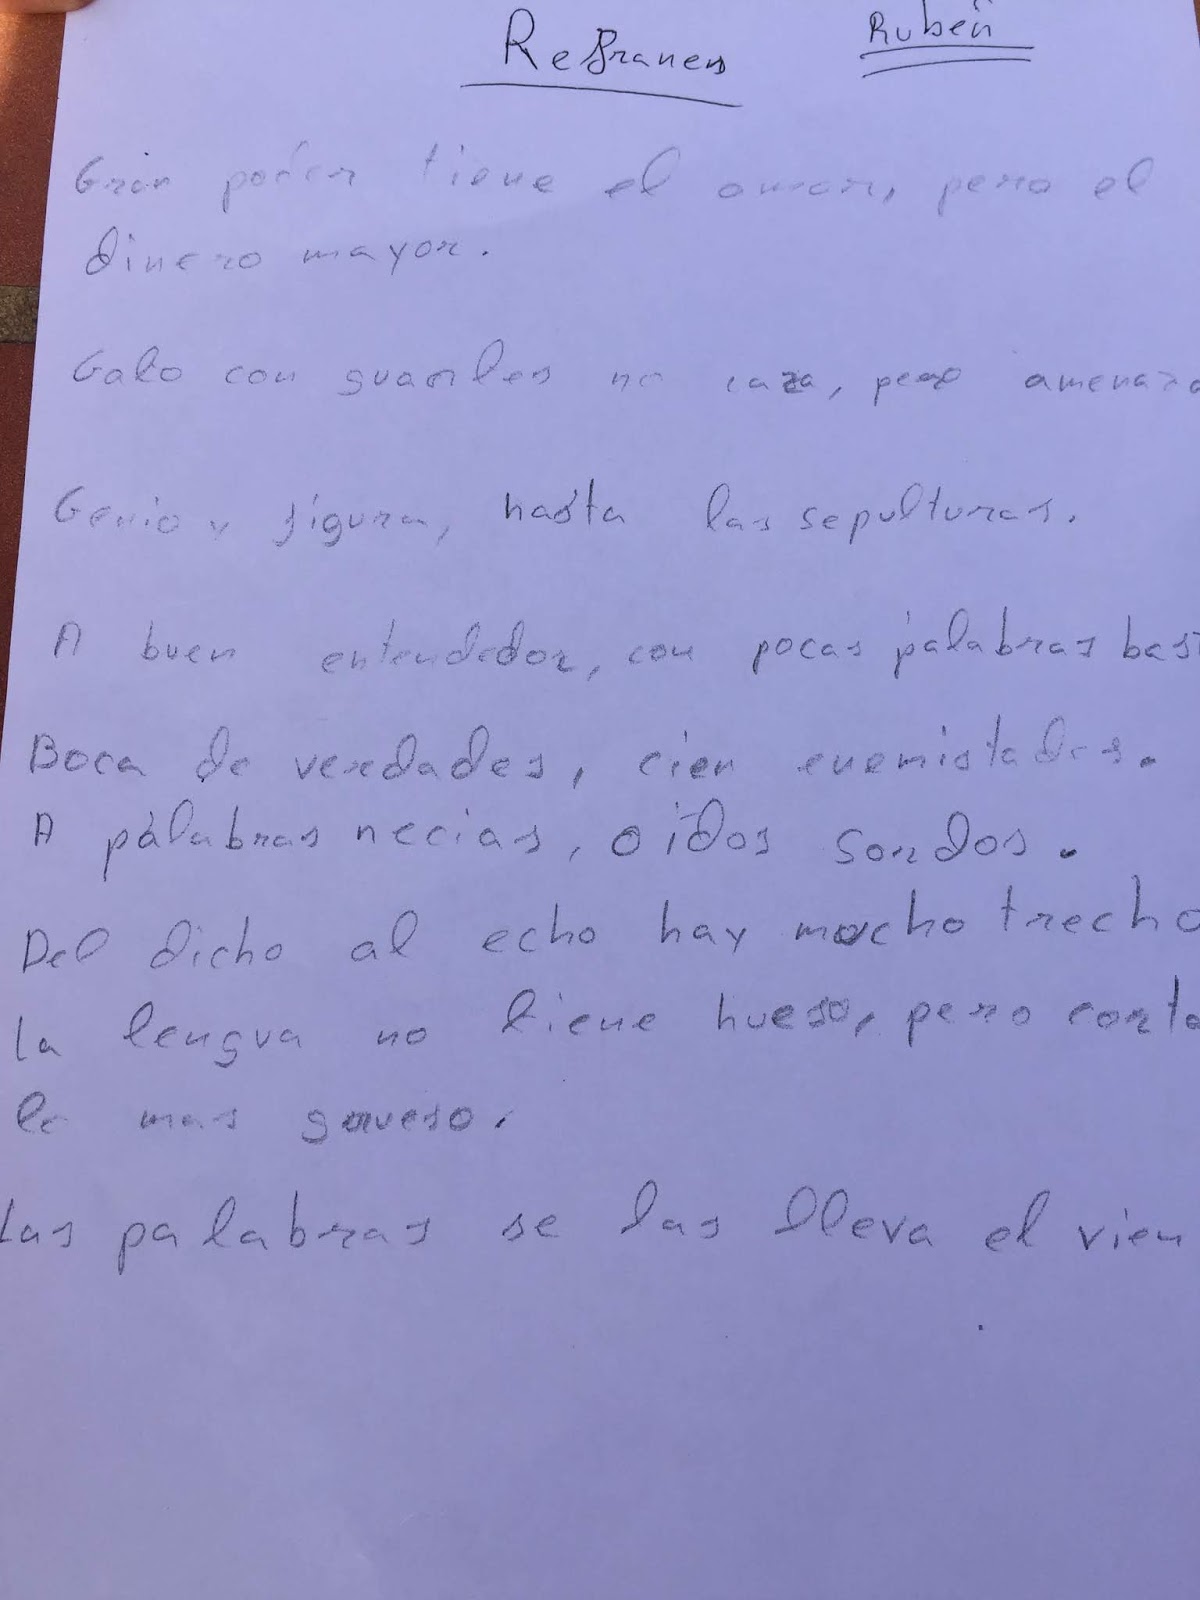 Refranes
Rubén
Gran poder tiene el amor, pero el
dinero mayor.
Gato con guantes no caza, pero amenaza
Genio y figura, hasta las sepulturas.
A buen entendedor, con pocas palabras bast
Boca de verdades, cien enemistades.
A palabras necias, oídos sordos.
Del dicho al echo hay mucho trecho
la lengua no tiene hueso, pero corta
lo mas grueso.
Las palabras se las lleva el vien